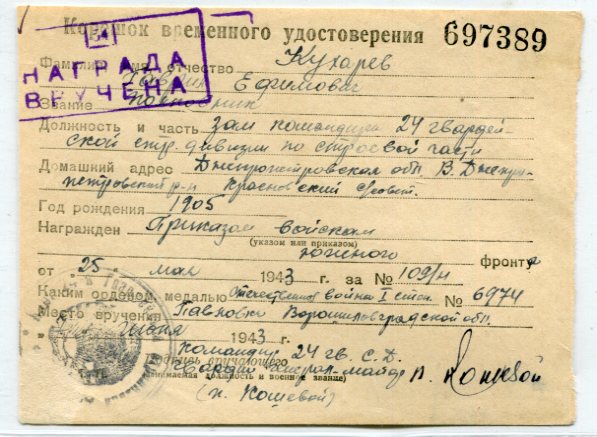 Корешок временного удостоверения 697389
НАГРАДА
ВРУЧЕНА
Фамилия, имя, отчество Кухарев
Ефимович
Звание Полковник
Должность и часть Зам командира 24 гвардей
ской стр. дивизии по строевой части
Домашний адрес Днипропетровская обл. В. Днепро-
петровский р-н
Год рождения 1905
Награжден Приказом войскам
(указом или приказом)
Южного фронта
от 25. мая 1943 г. за № 109/н
Каким орденом, медалью Отечествен война I степ. № 6974
Место вручения Павловка Ворошиловградской обл.
Июня 1943 г.
Командир 24 гв. С. Д.
Гвардии Генерал-майор П. Кошевой
(занимаемая должность и военное звание)
(п. Кошевой)